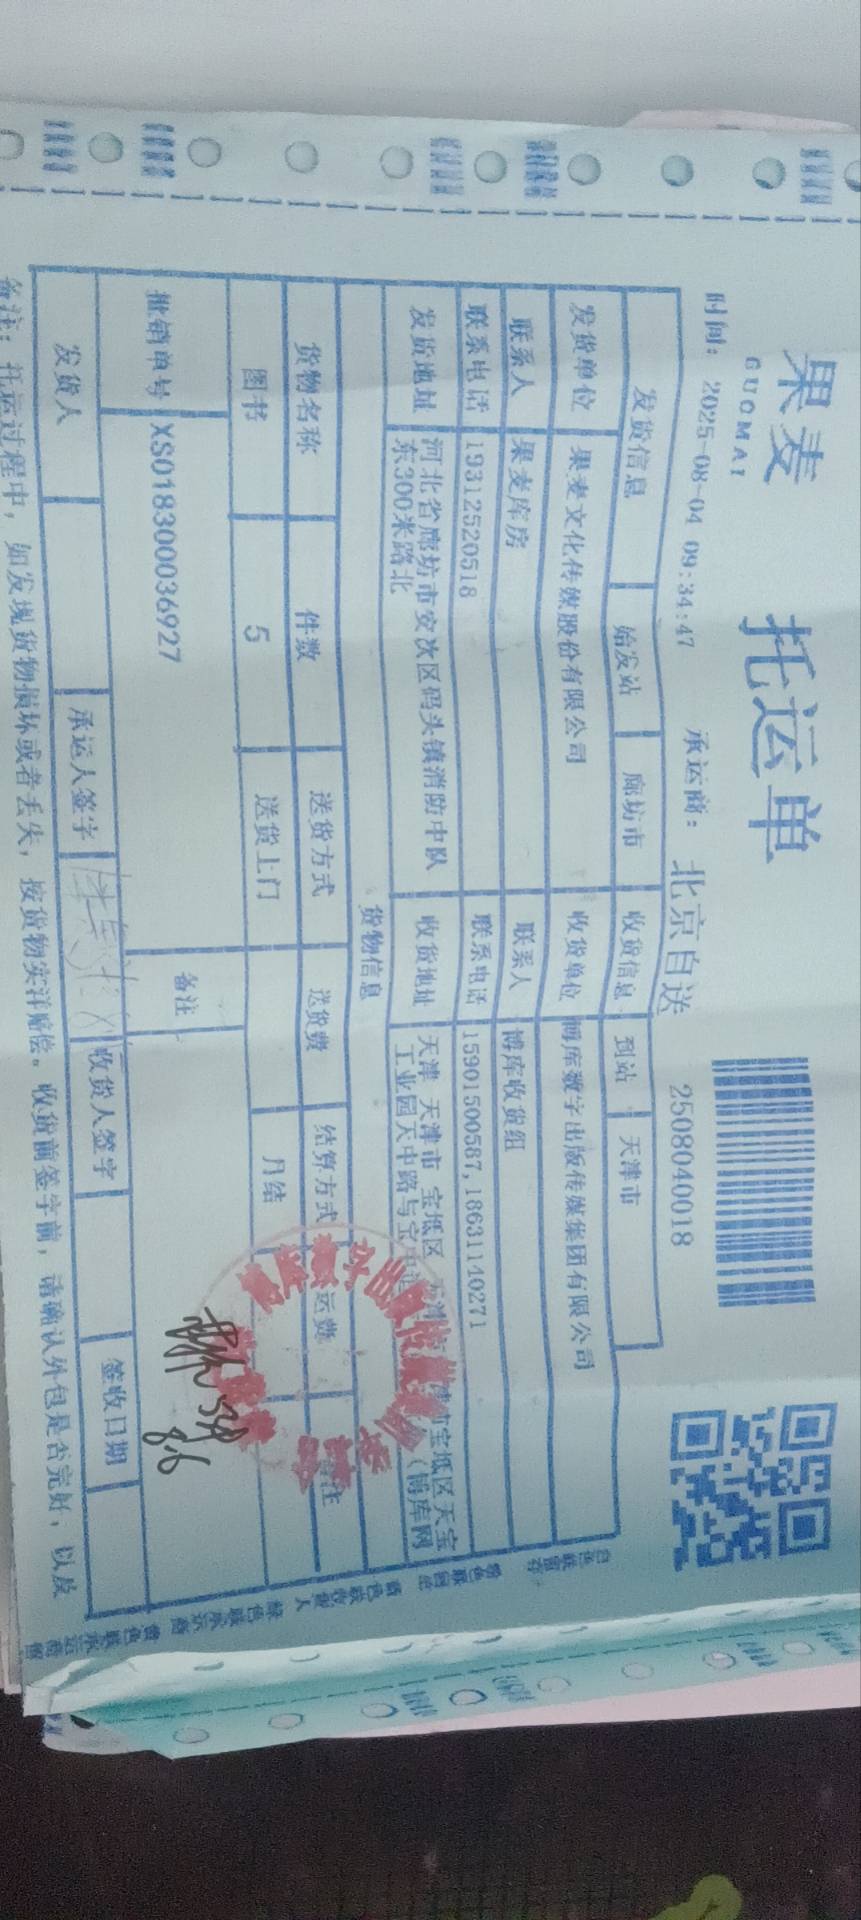 果麦
GUOMAI
托运单
时间: 2025-08-04 09:34:47
承运商: 北京自送
2508040018
发货信息 始发站 廊坊市 收货信息 到站 天津市
发货单位 果麦文化传媒股份有限公司 收货单位 博库数字出版传媒集团有限公司
联系人 果麦库房 联系人 博库收货组
联系电话 19312520518 联系电话 15901500587,18631140271
发货地址 河北省廊坊市安次区码头镇消防中队
东300米路北
收货地址 天津 天津市 宝坻区 宝坻区天宝
工业园天中路与宝中 (博库网
货物信息
货物名称 件数 送货方式 送货费 结算方式 运费 备注
图书 5 送货上门 月结
批销单号 XS018300036927 备注
8.6
发货人 承运人签字 收货人签字 签收日期
备注: 托运过程中, 如发现货物损坏或者丢失, 按货物实洋赔偿。收货前签字前, 请确认外包是否完好, 以及